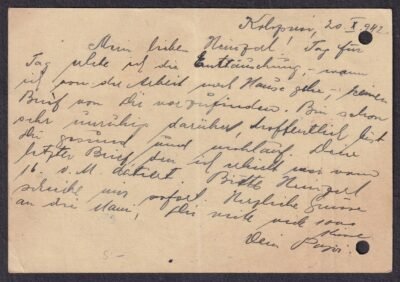 20 X. 942.
Mein lieber Heinzerl! Tag für
Tag erlebe ich die Enttäuschung, wenn
ich von der Arbeit nach Hause gehe, keinen
Brief von Dir vorzufinden. Bin schon
sehr unruhig darüber, hoffentlich bist
Du gesund und wohlauf. Deine
letzter Brief den ich erhielt war vom
16. v. M. datiert. Bitte Heinzerl
schreibe uns sofort. Herzliche Grüsse
an die Mami, Dir viele viele
Dein Papi.